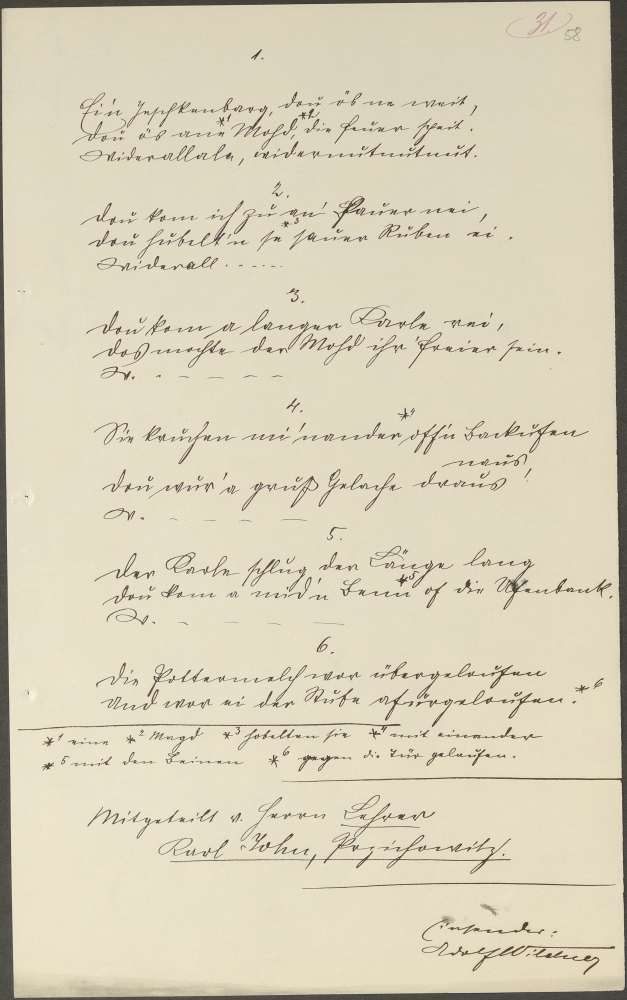 31. 58
1.
Ei'n Jeschkenbarg, dou ös ne weit,
Dou ös ane *1 Mohd, *2 die feuer speit.
Widerallala, widernutnutnut.
2.
Dou kom ich zu an' Pauer nei,
dou hubelt'n se *3 sauer Ruben ei.
Widerall - - - - -
3.
Dou kom a langer Karle rei,
dos mochte der Mohd ihr Freier sein.
W. - - - - -
4.
Sie kruchen mi'nander *4 off'n Backufen
naus,
Dou wur'a gruß Gelache draus!
W. - - - - -
5.
Der Karle schlug der Länge lang
dou kom a mid'n Benn *5 of die Ufenbank.
W. - - - - -
6.
Die Pottermelch wor übergeloufen
Und wor ei der Stube afürgeloufen. *6
*1 eine *2 Magd *3 hobelten sie *4 mit einander
*5 mit den Beinen *6 gegen die Tür gelaufen.
Mitgeteilt v. Herrn Lehrer
Karl John, Przichowitz.
Einsender:
Adolf Wildner